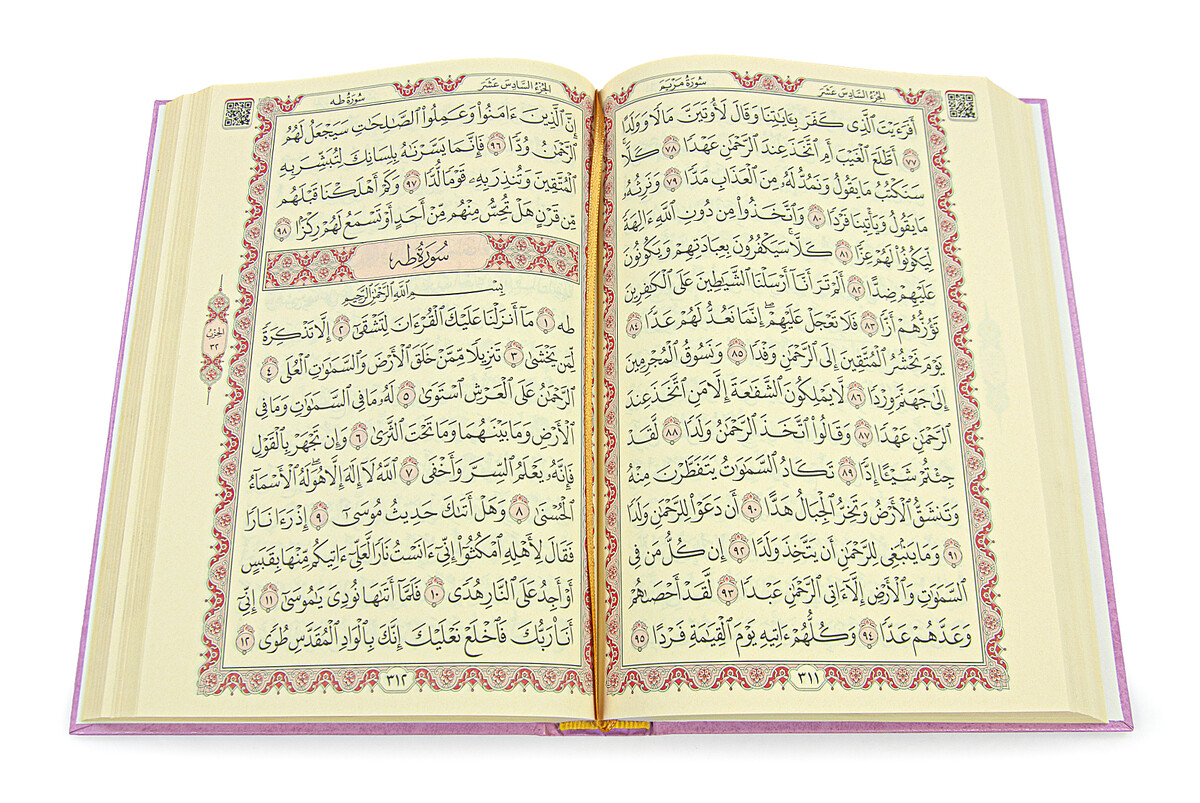 سُورَةُ مَرْيَمَ
الجُزْءُ السَّادِسَ عَشَرَ
أَفَرَءَيْتَ ٱلَّذِى كَفَرَ بِـَٔايَٰتِنَا وَقَالَ لَأُوتَيَنَّ مَالًا وَوَلَدًا
٧٧ أَطَّلَعَ ٱلْغَيْبَ أَمِ ٱتَّخَذَ عِندَ ٱلرَّحْمَٰنِ عَهْدًا ٧٨ كَلَّا
سَنَكْتُبُ مَا يَقُولُ وَنَمُدُّ لَهُۥ مِنَ ٱلْعَذَابِ مَدًّا ٧٩ وَنَرِثُهُۥ
مَا يَقُولُ وَيَأْتِينَا فَرْدًا ٨٠ وَٱتَّخَذُوا۟ مِن دُونِ ٱللَّهِ ءَالِهَةً
لِّيَكُونُوا۟ لَهُمْ عِزًّا ٨١ كَلَّا ۚ سَيَكْفُرُونَ بِعِبَادَتِهِمْ وَيَكُونُونَ
عَلَيْهِمْ ضِدًّا ٨٢ أَلَمْ تَرَ أَنَّآ أَرْسَلْنَا ٱلشَّيَٰطِينَ عَلَى ٱلْكَٰفِرِينَ
تَؤُزُّهُمْ أَزًّا ٨٣ فَلَا تَعْجَلْ عَلَيْهِمْ ۖ إِنَّمَا نَعُدُّ لَهُمْ عَدًّا ٨٤
يَوْمَ نَحْشُرُ ٱلْمُتَّقِينَ إِلَى ٱلرَّحْمَٰنِ وَفْدًا ٨٥ وَنَسُوقُ ٱلْمُجْرِمِينَ
إِلَىٰ جَهَنَّمَ وِرْدًا ٨٦ لَّا يَمْلِكُونَ ٱلشَّفَٰعَةَ إِلَّا مَنِ ٱتَّخَذَ عِندَ
ٱلرَّحْمَٰنِ عَهْدًا ٨٧ وَقَالُوا۟ ٱتَّخَذَ ٱلرَّحْمَٰنُ وَلَدًا ٨٨ لَّقَدْ
جِئْتُمْ شَيْـًٔا إِدًّا ٨٩ تَكَادُ ٱلسَّمَٰوَٰتُ يَتَفَطَّرْنَ مِنْهُ
وَتَنشَقُّ ٱلْأَرْضُ وَتَخِرُّ ٱلْجِبَالُ هَدًّا ٩٠ أَن دَعَوْا۟ لِلرَّحْمَٰنِ وَلَدًا
٩١ وَمَا يَنۢبَغِى لِلرَّحْمَٰنِ أَن يَتَّخِذَ وَلَدًا ٩٢ إِن كُلُّ مَن فِى
ٱلسَّمَٰوَٰتِ وَٱلْأَرْضِ إِلَّآ ءَاتِى ٱلرَّحْمَٰنِ عَبْدًا ٩٣ لَّقَدْ أَحْصَىٰهُمْ
وَعَدَّهُمْ عَدًّا ٩٤ وَكُلُّهُمْ ءَاتِيهِ يَوْمَ ٱلْقِيَٰمَةِ فَرْدًا ٩٥
٣١١
الجُزْءُ السَّادِسَ عَشَرَ
سُورَةُ طه
إِنَّ ٱلَّذِينَ ءَامَنُوا۟ وَعَمِلُوا۟ ٱلصَّٰلِحَٰتِ سَيَجْعَلُ لَهُمُ
ٱلرَّحْمَٰنُ وُدًّا ٩٦ فَإِنَّمَا يَسَّرْنَٰهُ بِلِسَانِكَ لِتُبَشِّرَ بِهِ
ٱلْمُتَّقِينَ وَتُنذِرَ بِهِۦ قَوْمًا لُّدًّا ٩٧ وَكَمْ أَهْلَكْنَا قَبْلَهُم
مِّن قَرْنٍ هَلْ تُحِسُّ مِنْهُم مِّنْ أَحَدٍ أَوْ تَسْمَعُ لَهُمْ رِكْزًۢا ٩٨
سُورَةُ طه
بِسْمِ ٱللَّهِ ٱلرَّحْمَٰنِ ٱلرَّحِيمِ
طه ١ مَآ أَنزَلْنَا عَلَيْكَ ٱلْقُرْءَانَ لِتَشْقَىٰٓ ٢ إِلَّا تَذْكِرَةً
لِّمَن يَخْشَىٰ ٣ تَنزِيلًا مِّمَّنْ خَلَقَ ٱلْأَرْضَ وَٱلسَّمَٰوَٰتِ ٱلْعُلَى ٤
ٱلرَّحْمَٰنُ عَلَى ٱلْعَرْشِ ٱسْتَوَىٰ ٥ لَهُۥ مَا فِى ٱلسَّمَٰوَٰتِ وَمَا فِى
ٱلْأَرْضِ وَمَا بَيْنَهُمَا وَمَا تَحْتَ ٱلثَّرَىٰ ٦ وَإِن تَجْهَرْ بِٱلْقَوْلِ
فَإِنَّهُۥ يَعْلَمُ ٱلسِّرَّ وَأَخْفَى ٧ ٱللَّهُ لَآ إِلَٰهَ إِلَّا هُوَ ۖ لَهُ ٱلْأَسْمَآءُ
ٱلْحُسْنَىٰ ٨ وَهَلْ أَتَىٰكَ حَدِيثُ مُوسَىٰٓ ٩ إِذْ رَءَا نَارًا
فَقَالَ لِأَهْلِهِ ٱمْكُثُوٓا۟ إِنِّىٓ ءَانَسْتُ نَارًا لَّعَلِّىٓ ءَاتِيكُم مِّنْهَا بِقَبَسٍ
أَوْ أَجِدُ عَلَى ٱلنَّارِ هُدًى ١٠ فَلَمَّآ أَتَىٰهَا نُودِىَ يَٰمُوسَىٰٓ ١١ إِنِّىٓ
أَنَا۠ رَبُّكَ فَٱخْلَعْ نَعْلَيْكَ ۖ إِنَّكَ بِٱلْوَادِ ٱلْمُقَدَّسِ طُوًى ١٢
الحزب
٣٢
٣١٢